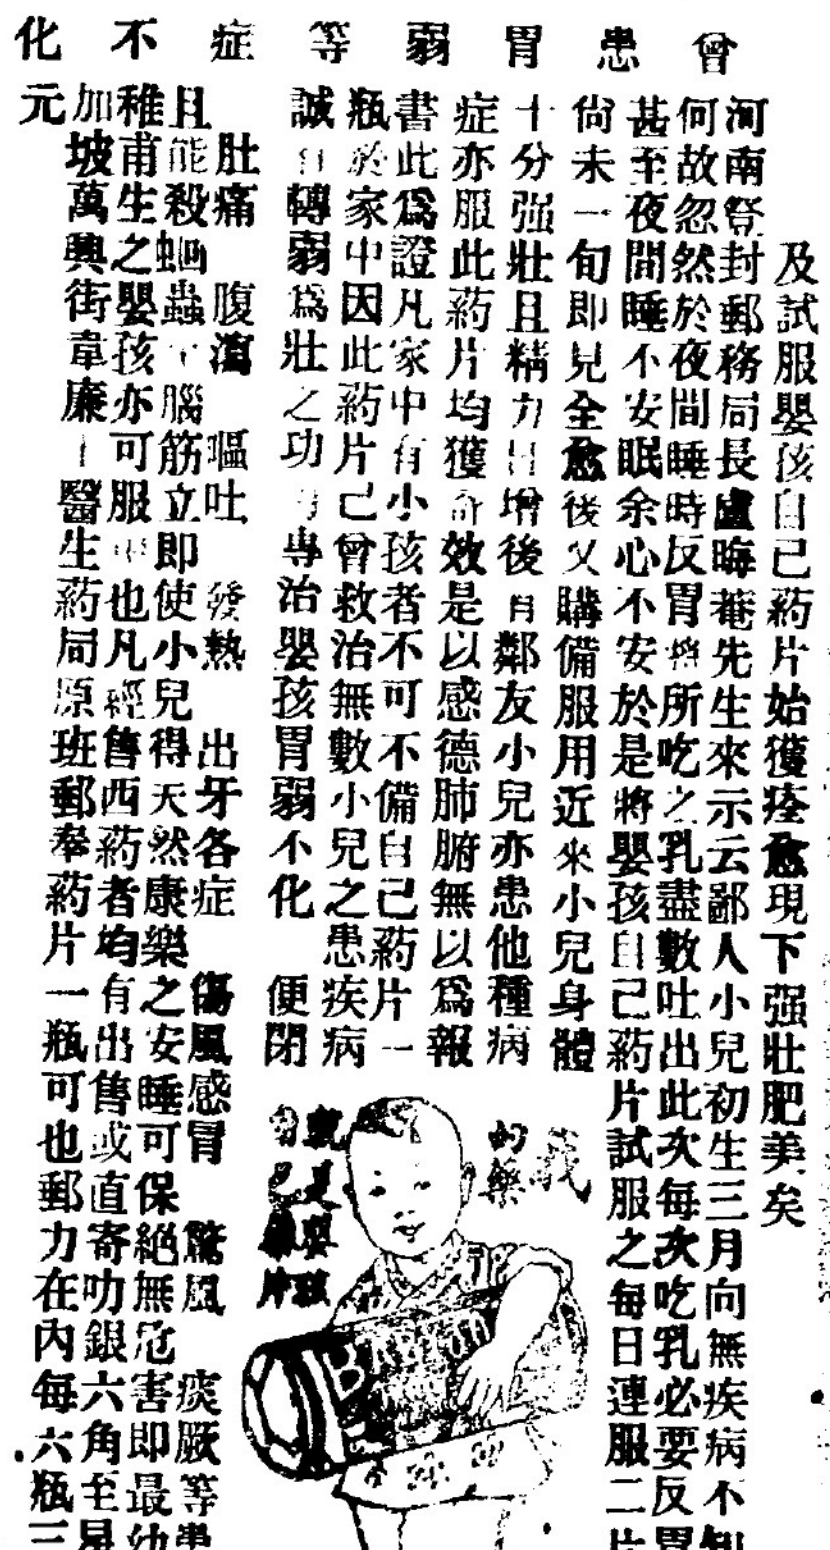 曾患胃弱等症不化
及試服嬰孩自己药片始獲痊愈現下强壯肥美矣
河南登封郵務局長盧晦菴先生來示云鄙人小兒初生三月向無疾病不知
何故忽然於夜間睡時反胃將所吃之乳盡數吐出此次每次吃乳必要反胃
甚至夜間睡不安眠余心不安於是將嬰孩自己药片試服之每日連服二片
尙未一旬即見全愈後又購備服用近來小兒身體
十分强壯且精力日增後有鄰友小兒亦患他種病
症亦服此药片均獲奇效是以感德肺腑無以爲報
書此爲證凡家中有小孩者不可不備自己药片一
瓶於家中因此药片己曾救治無數小兒之患疾病
誠有轉弱爲壯之功 專治嬰孩胃弱不化 便閉
肚痛 腹瀉 嘔吐 發熱 出牙各症 傷風感冒 驚風 痰厥等患
且能殺蛔蟲 腦筋立即使小兒得天然康樂之安睡可保絕無危害即最幼
稚甫生之嬰孩亦可服 也凡經售西药者均有出售或直寄叻銀六角至星
加坡萬興街韋廉 醫生药局原班郵奉药片一瓶可也郵力在內每六瓶三
元
我
的藥
就是嬰孩
自己藥片